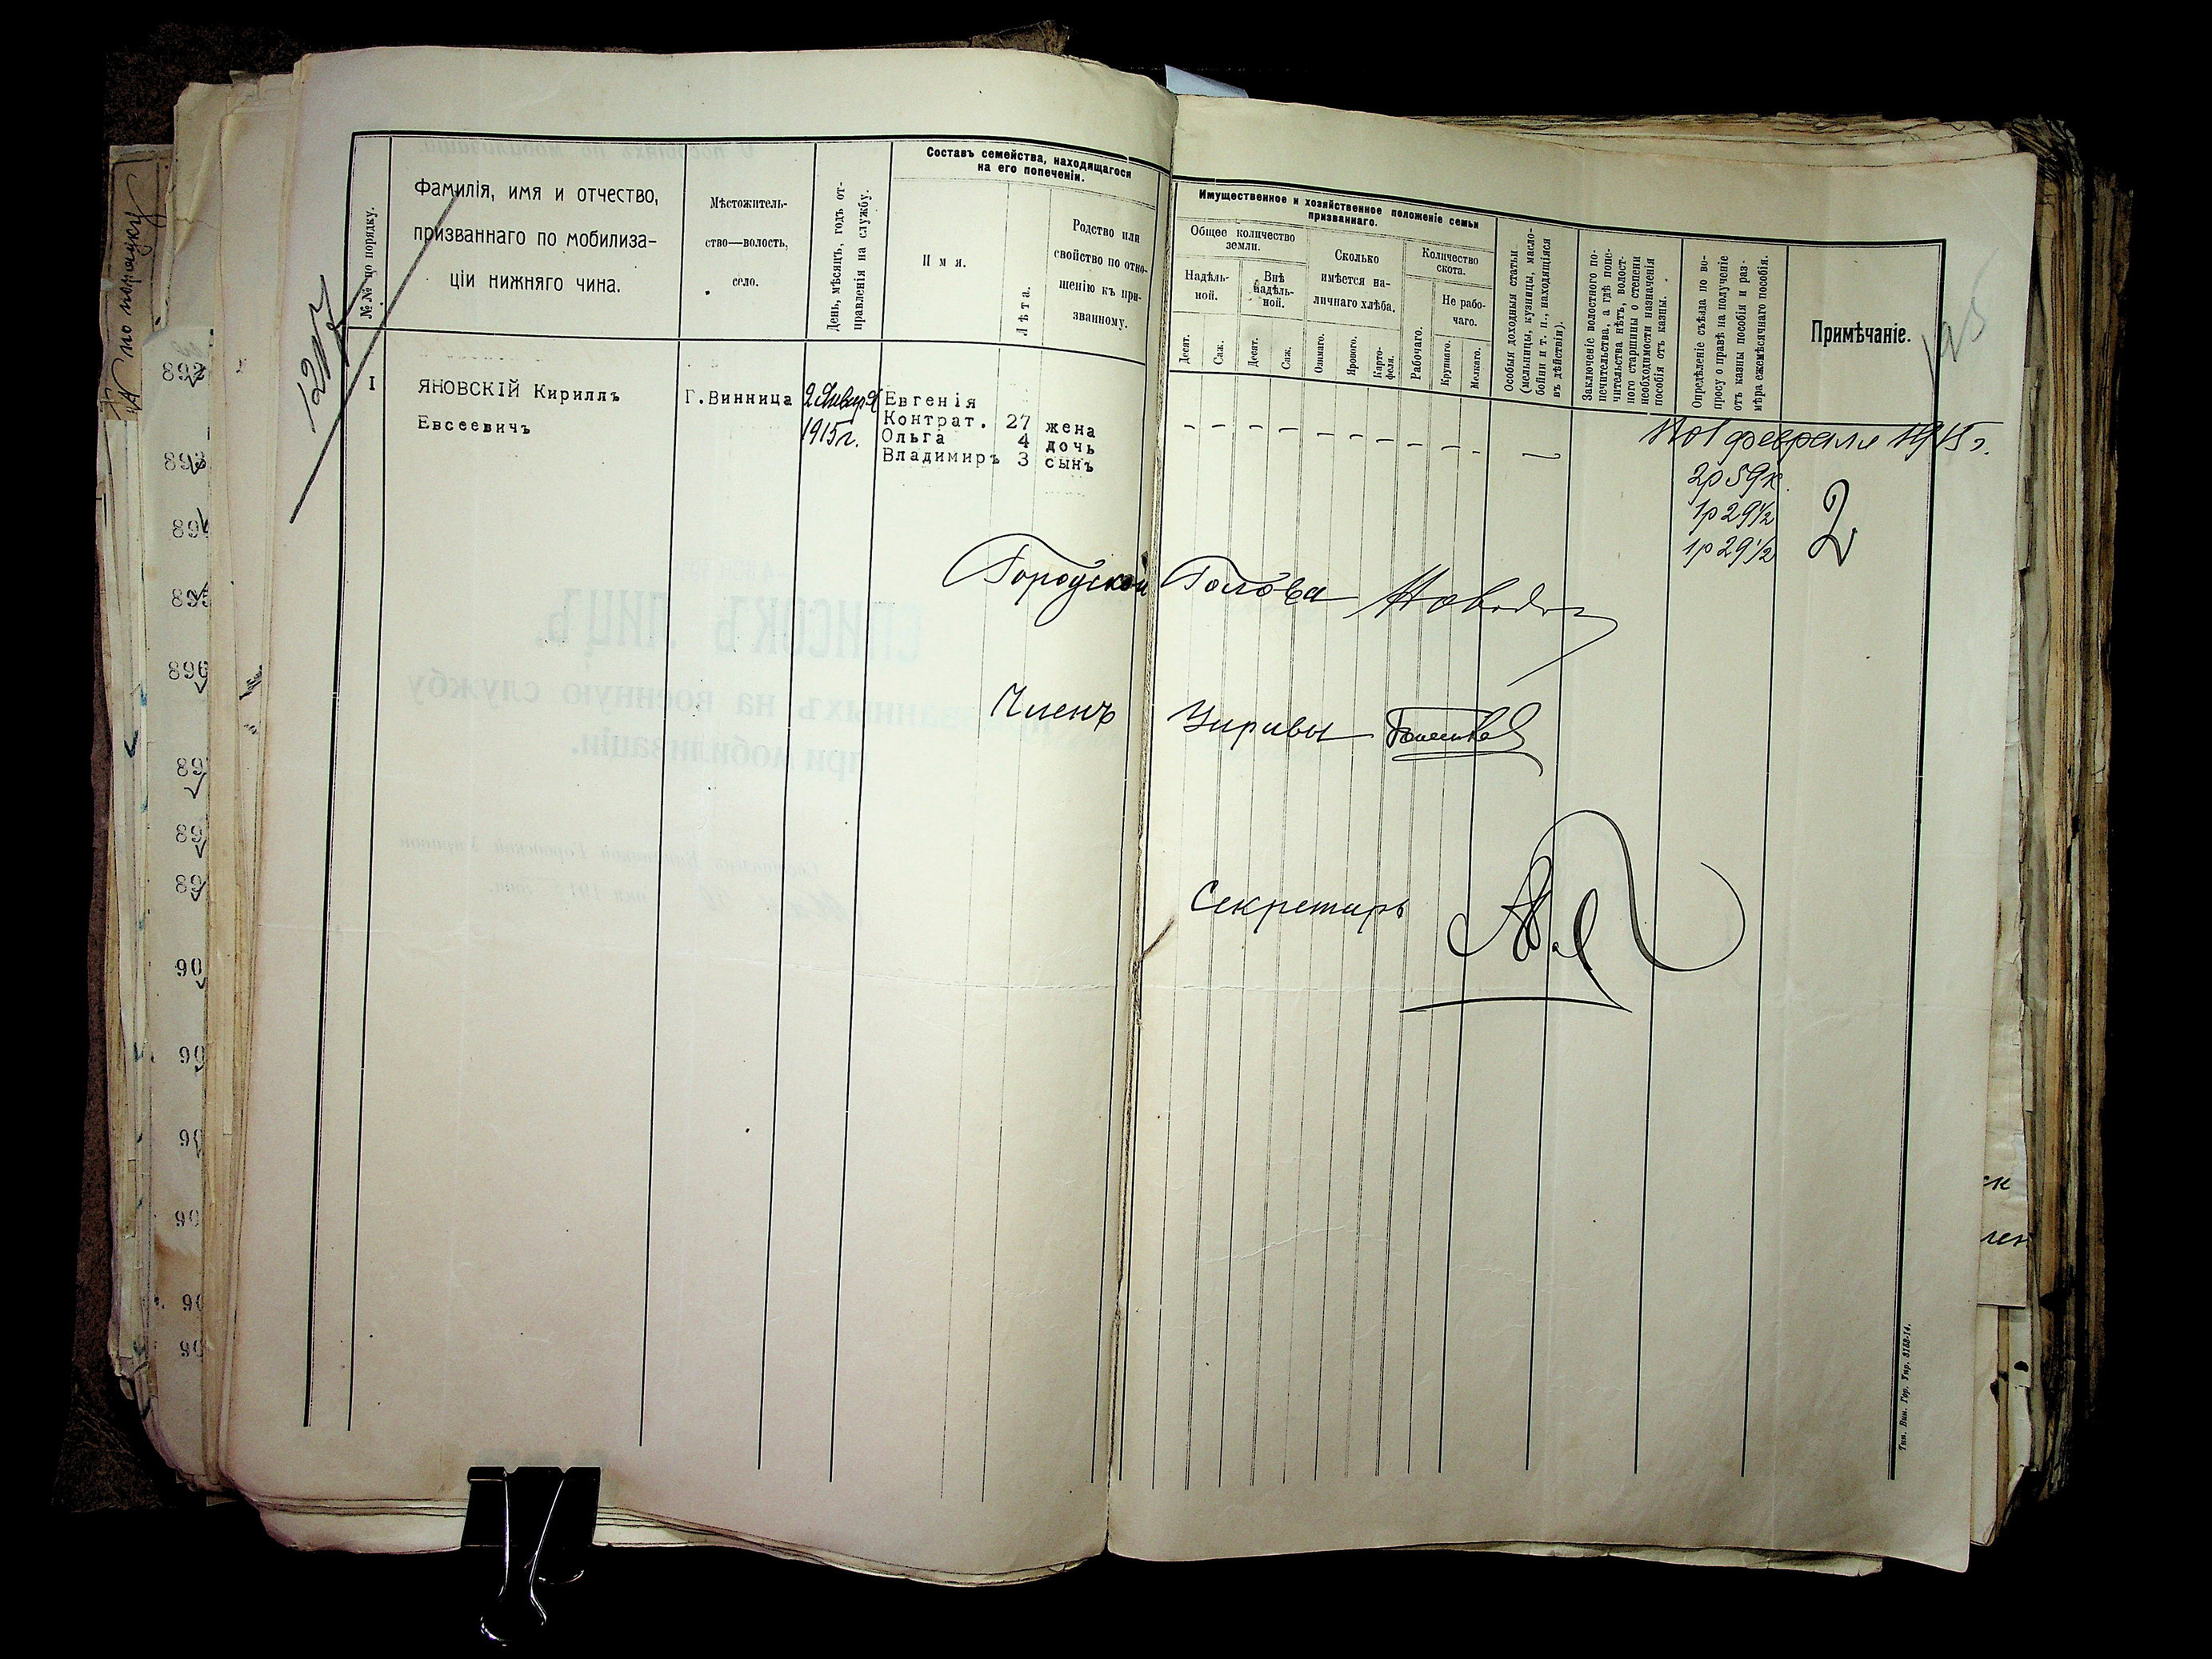 № по порядку
№№ по порядку.
Фамилія, имя и отчество,
призваннаго по мобилиза-
ціи нижняго чина.
Мѣстожитель-
ство—волость,
село.
День, мѣсяцъ, годъ от-
правленія на службу.
Составъ семейства, находящагося
на его попеченіи.
Имя.
Лѣта.
Родство или
свойство по отно-
шенію къ при-
званному.
Имущественное и хозяйственное положеніе семьи
призваннаго.
Общее количество
земли.
Надѣль-
ной.
Внѣ
надѣль-
ной.
Десят.
Саж.
Десят.
Саж.
Сколько
имѣется на-
личнаго хлѣба.
Озимаго.
Ярового.
Карто-
феля.
Количество
скота.
Рабочаго.
Не рабо-
чаго.
Крупнаго.
Мелкаго.
Особыя доходныя статьи
(мельницы, кузницы, масло-
бойни и т. п., находящіяся
въ дѣйствіи).
Заключеніе волостного по-
печительства, а гдѣ попе-
чительства нѣтъ, волост-
ного старшины о степени
необходимости назначенія
пособія отъ казны.
Опредѣленіе съѣзда по во-
просу о правѣ на полученіе
отъ казны пособія и раз-
мѣра ежемѣсячнаго пособія.
Примѣчаніе.
I
ЯНОВСКІЙ Кириллъ
Евсеевичъ
Г.Винница
2 Января
1915г.
Евгенія
Контрат. 27 жена
Ольга 4 дочь
Владимиръ 3 сынъ
- - - - - - - - - - —
По 1 февраля 1915 г.
2р 59к.
1р 29½
1р 29½
2
Городской Голова
Членъ Управы
Секретарь
СПИСОКЪ ЛИЦЪ,
призванныхъ на военную службу
при мобилизаціи.
892
893
896
Тип. Вин. Гор. Упр. 3153-14.